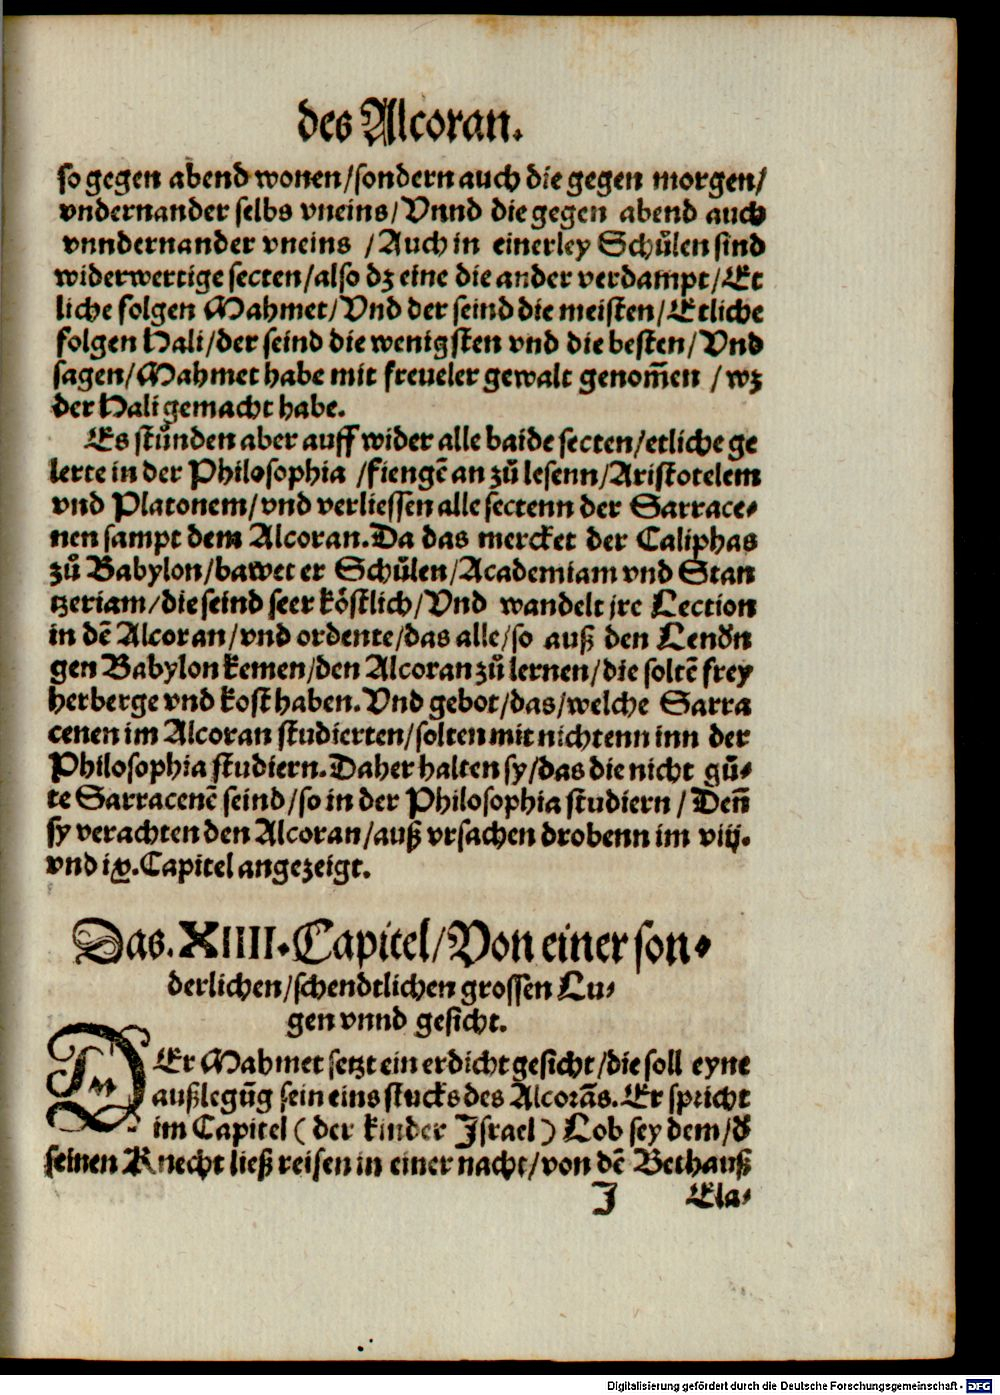 des Alcoran.
so gegen abend wonen/sondern auch die gegen morgen/
vndernander selbs vneins/Vnnd die gegen abend auch
vnndernander vneins /Auch in einerley Schůlen sind
widerwertige secten/also dz eine die ander verdampt/Et
liche folgen Mahmet/Vnd der seind die meisten/Etliche
folgen Hali/der seind die wenigsten vnd die besten/Vnd
sagen/Mahmet habe mit freueler gewalt genom̃en /wz
der Hali gemacht habe.
Es stůnden aber auff wider alle baide secten/etliche ge
lerte in der Philosophia /fiengē an zů lesenn/Aristotelem
vnd Platonem/vnd verliessen alle sectenn der Sarrace⸗
nen sampt dem Alcoran.Da das mercket der Caliphas
zů Babylon/bawet er Schůlen/Academiam vnd Stan
tzeriam/die seind seer köstlich/Vnd wandelt jre Lection
in dē Alcoran/vnd ordente/das alle/so auß den Lendn
gen Babylon kemen/den Alcoran zů lernen/die soltē frey
herberge vnd kost haben.Vnd gebot/das/welche Sarra
cenen im Alcoran studierten/solten mit nichtenn inn der
Philosophia studiern.Daher halten sy/das die nicht gů⸗
te Sarracenē seind/so in der Philosophia studiern/Deñ
sy verachten den Alcoran/auß vrsachen drobenn im viij.
vnd ix.Capitel angezeigt.
Das.XIIII.Capitel/Von einer son⸗
derlichen/schendtlichen grossen Lu⸗
gen vnnd gesicht.
DEr Mahmet setzt ein erdicht gesicht/die soll eyne
außlegūg sein eins stucks des Alcorās.Er spricht
im Capitel (der kinder Israel) Lob sey dem/d̕
seinen Knecht ließ reisen in einer nacht/von dē Bethauß
J Ela⸗
Digitalisierung gefördert durch die Deutsche Forschungsgemeinschaft - DFG